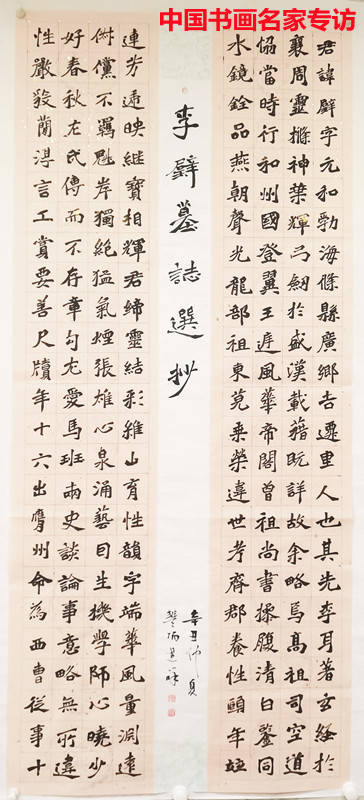 中国书画名家专访
君諱璧字元和勃海條縣廣鄉吉遷里人也其先李耳著玄經於
襄周靈擽神葉輝弓劒於盛漢載藉既詳故余略焉高祖司空道
協當時行和州國登翼王遲風華帝閣曾祖尚書操履清白鑒同
水鏡銓品燕朝聲光龍部祖東莞乘榮違世考齊郡養性頤年竝
李璧墓誌選抄
辛丑仲夏
連芳遞映繼寶相輝君締靈結彩維山育性韻宇端華風量淵遠
倜儻不羈魁岸獨絕猛氣煙張雄心泉涌藝曰生機學師心曉少
好春秋左氏傳而不存章句尤愛馬班兩史談論事意略無所違
性嚴毅簡淳言工賞要善尺牘年十六出膺州命為西曹從事十